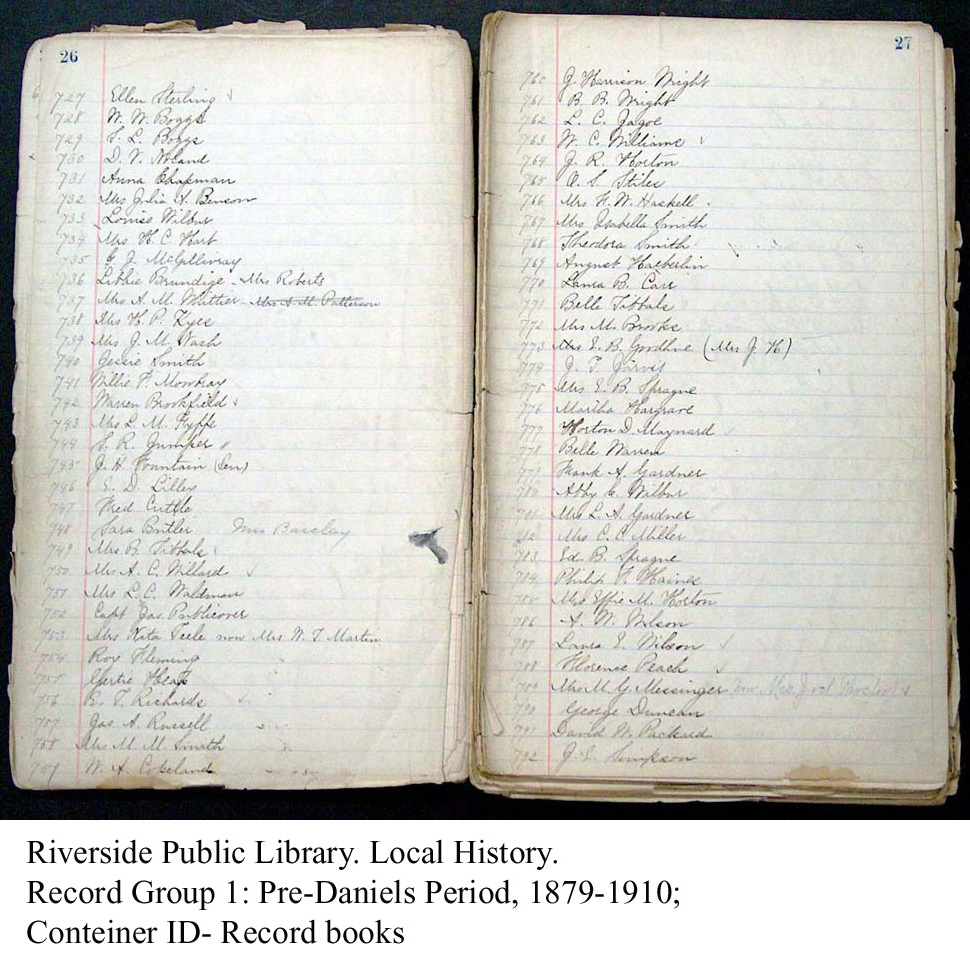 26
727 Ellen Sterling
728 W. W. Boggs
729 S. L. Boggs
730 D. V. Noland
731 Anna Chapman
732 Mrs Julia A. Benson
733 Louise Wilbur
734 Mrs H. C. Hart
735 G. J. McGillivray
736 Libbie Brundige - Mrs Roberts
737 Mrs A. M. Whittier - Mrs A. M. Patterson
738 Mrs H. P. Kyes
739 Mrs J. M. Nash
740 Jessie Smith
741 Willie P. Mowbray
742 Warren Brookfield
743 Mrs L. M. Fyffe
744 S. R. Jumper
745 J. H. Fountain (Sen)
746 E. D. Lilley
747 Fred Cuttle
748 Sara Butler Mrs Barclay
749 Mrs B. Tibbals
750 Mrs A. C. Willard
751 Mrs L. C. Waldman
752 Capt Jas. Publicover
753 Mrs Kita Teele now Mrs W. T. Martin
754 Roy Fleming
755 Gertie Heath
756 R. T. Richards
757 Jas. A. Russell
758 Mrs M. M. Smith
759 W. A. Copeland
27
760 J. Harrison Wright
761 B. B. Wright
762 L. C. Jagoe
763 W. C. Williams
764 J. R. Horton
765 O. S. Stiles
766 Mrs H. W. Haskell
767 Mrs Isabella Smith
768 Theodora Smith
769 August Haeberlin
770 Laura B. Carr
771 Belle Tibbals
772 Mrs M. Brooks
773 Mrs E. B. Goodhue (Mrs J. H)
774 J. T. Jarvis
775 Mrs E. B. Sprague
776 Martha Hargrave
777 Horton D. Maynard
778 Belle Warren
779 Frank A. Gardner
780 Abby G. Wilbur
781 Mrs L. A. Gardner
782 Mrs C. C. Miller
783 Ed. B. Sprague
784 Philip F. Haines
785 Mrs Effie M. Horton
786 A. W. Wilson
787 Laura E. Wilson
788 Florence Peach
789 Mrs M. G. Messinger now Mrs
790 George Duncan
791 David W. Packard
792 J. E. Simpson
Riverside Public Library. Local History.
Record Group 1: Pre-Daniels Period, 1879-1910;
Conteiner ID- Record books